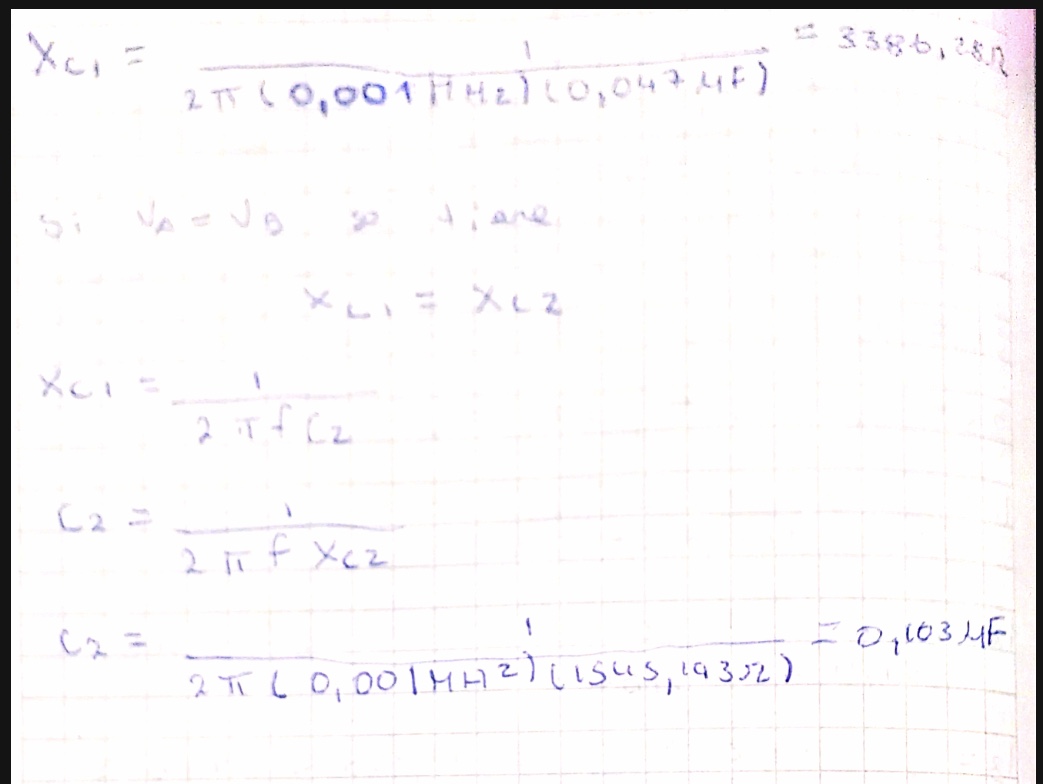 Xc1 = 1 / 2π(0,001MHz)(0,047μF) = 3386,28Ω
Si VA = VB se tiene
Xc1 = Xc2
Xc1 = 1 / 2πfC2
C2 = 1 / 2πfXc2
C2 = 1 / 2π(0,001MHz)(1545,193Ω) = 0,103μF